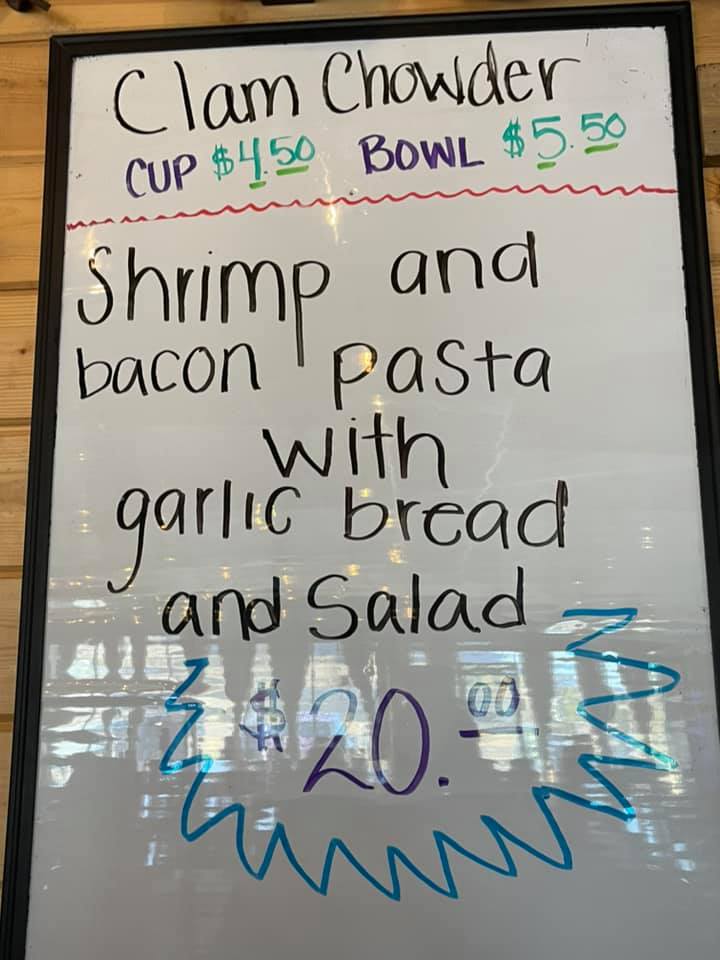 Clam Chowder
CUP $4.50 BOWL $5.50
Shrimp and
bacon pasta
with
garlic bread
and Salad
$20.00